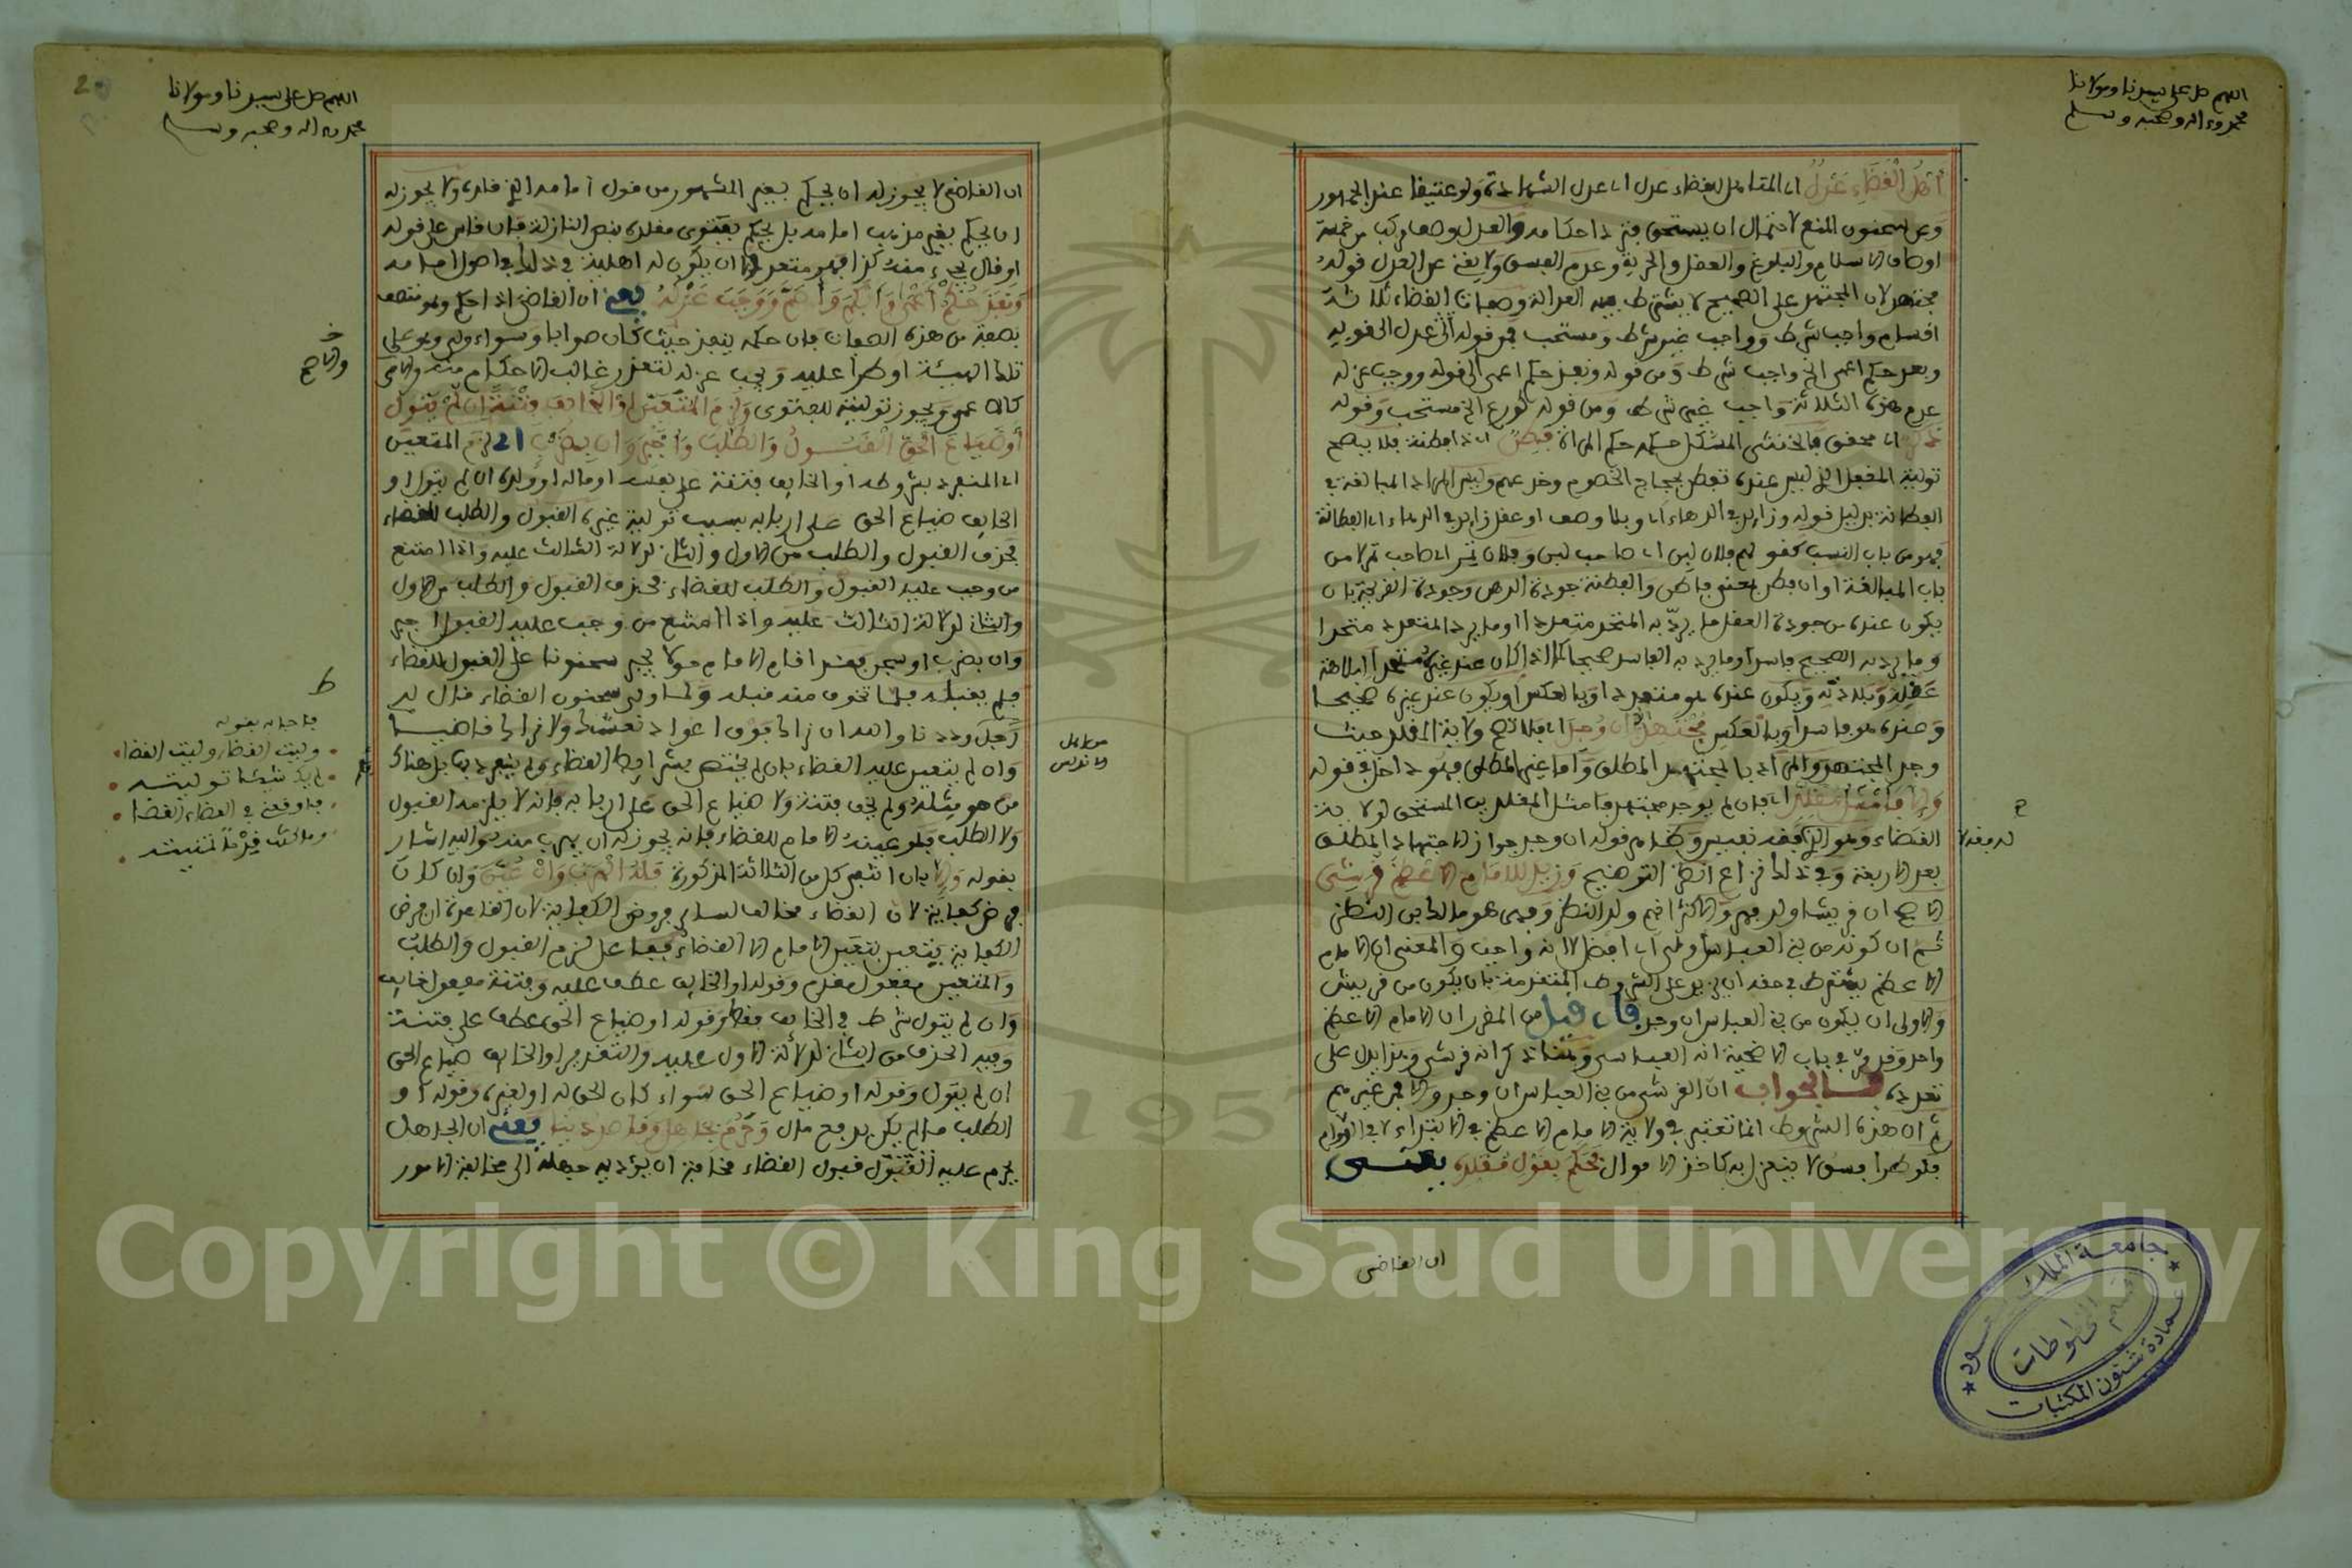 اللهم صل على سيدنا ومولانا
محمد وءاله وصحبه وسلم
أهل القضاء عدل اي المتاهل للقضاء عدل اي عدل الشهادة ولو عتيقا عند الجمهور
وعن سحنون المنع لاحتمال ان يستحق فترد احكامه والعدل وصف مركب من خمسة
اوصاف الاسلام والبلوغ والعقل والحرية وعدم الفسق ولا يغني عن العدل قوله
مجتهد لان المجتهد على الصحيح لا يشترط فيه العدالة وصفات القضاء ثلاثة
اقسام واجب شرط وواجب غير شرط ومستحب فمن قوله اي عدل الى قوله
ونفذ حكم اعمى الخ واجب شرط ومن قوله ونفذ حكم اعمى الى قوله ووجب عزله
عدم هذه الثلاثة واجب غير شرط ومن قوله كورع الخ مستحب وقوله
ذكر اي محقق فالخنثى المشكل حكمه حكم المراة فطن اي ذا فطنة فلا يصح
تولية المغفل الذي ليس عنده تفطن بحجاج الخصوم وخدعهم وليس المراد المبالغة في
الفطانة بدليل قوله وزايد في الدهاء اي وبلا وصف او عقل زايد في الدهاء اي الفطانة
فهو من باب النسب كقولهم فلان لبن اي صاحب لبن وفلان تمر اي صاحب تمر لا من
باب المبالغة او ان فطن بمعنى فاطن والفطنة جودة الذهن وجودة القريحة بان
يكون عنده من جودة العقل ما يرد به المتحد متعددا او ما يرد المتعدد متحدا
وما يرد به الصحيح فاسدا وما يرد به الفاسد صحيحا لا اذا كان عند غيره متحدا لبلاهة
عقله وبلادته ويكون عنده هو متعددا وبالعكس او يكون عند غيره صحيحا
وعنده هو فاسدا وبالعكس مجتهد ان وجد اي فلا تصح ولاية المقلد حيث
وجد المجتهد والمراد بالمجتهد المطلق واما غير المطلق فهو داخل في قوله
والا فامثل مقلد اي فان لم يوجد مجتهد فامثل المقلدين المستحق لولاية
القضاء وهو الذي له فقه نفيس وظاهر قوله ان وجد جواز الاجتهاد المطلق
بعد الاربعة وفي ذلك نزاع انظر التوضيح وزيد للامام الاعظم قرشي
الاصح ان قريشا ولد فهر والاكثر انهم ولد النضر وفهر هو مالك بن النضر
ثم ان كونه من بني العباس اولى اي افضل لا انه واجب والمعنى ان الامام
الاعظم يشترط في حقه ان يزيد على الشروط المتقدمة بان يكون من قريش
والاولى ان يكون من بني العباس ان وجد فان قيل من المقرر ان الامام الاعظم
واحد وقد مر في باب الاضحية انه العباسي وهنا ذكر انه قرشي وهذا يدل على
تعدده فالجواب ان القرشي من بني العباس ان وجد والا فمن غيرهم
ثم ان هذه الشروط انما تعتبر في ولاية الامام الاعظم في الابتداء لا في الدوام
فلو طرا فسق لا ينعزل به كاخذ الاموال فحكم بقول مقلده يعنى
ان القاضي
اللهم صل على سيدنا ومولانا
محمد وءاله وصحبه وسلم
ان القاضي لا يجوز له ان يحكم بغير المشهور من قول امامه الذي قلده ولا يجوز له
ان يحكم بغير مذهب امامه بل يحكم بفتوى مقلده بنص النازلة فان قاس على قوله
او قال يجيء منه كذا فهو متعد الا ان يكون له اهلية في ذلك في اصول امامه
ونفذ حكم أعمى وأبكم وأصم ووجب عزله يعني ان القاضي اذا حكم وهو متصف
بصفة من هذه الصفات فان حكمه ينفذ حيث كان صوابا وسواء ولي وهو على
تلك الهيئة او طرا عليه ويجب عزله لتعذر غالب الاحكام منه والامي
كالاعمى ويجوز توليته للفتوى ولزم المتعين او الخايف فتنة ان لم يتول
أو ضياع الحق القبول والطلب وأجبر وان بضرب اي لزم المتعين
اي المنفرد بشروطه او الخايف فتنة على نفسه او ماله او ولده ان لم يتول او
الخايف ضياع الحق على اربابه بسبب تولية غيره القبول والطلب للقضاء
فحذف القبول والطلب من الاول والثاني لدلالة الثالث عليه واذا امتنع
من وجب عليه القبول والطلب للقضاء فحذف القبول والطلب من الاول
والثاني لدلالة الثالث عليه واذا امتنع من وجب عليه القبول اجبر
وان بضرب او سجن فقد اقام الامام حولا يجبر سحنونا على القبول للقضاء
فلم يقبله فلما تخوف منه قبله ولما ولي سحنون القضاء قال له
رجل وددنا والله ان نراك فوق اعواد نعشك ولا نراك قاضيا
وان لم يتعين عليه القضاء بان لم يختص بشرايط القضاء ولم ينفرد بها بل هناك
من هو مثله ولم يخف فتنة ولا ضياع الحق على اربابه فانه لا يلزمه القبول
ولا الطلب فلو عينه الامام للقضاء فانه يجوز له ان يهرب منه واليه اشار
بقوله والا بان انتفى كل من الثلاثة المذكورة فله الهرب وان عين وان كان
فرض كفاية لان القضاء مخالف لساير فروض الكفاية لان القاعدة ان فرض
الكفاية يتعين بتعين الامام الا القضاء ففاعل لزم القبول والطلب
والمتعين مفعول مقدم وقوله او الخايف عطف عليه وفتنة مفعول خايف
وان لم يتول شرط في الخايف فقط وقوله او ضياع الحق عطف على فتنة
وفيه الحذف من الثاني لدلالة الاول عليه والتقدير او الخايف ضياع الحق
ان لم يتول وقوله او ضياع الحق سواء كان الحق له او لغيره وقوله او
الطلب ما لم يكن بدفع مال وحرم لجاهل وقاصد دنيا يعني ان الجاهل
يحرم عليه قبول القضاء مخافة ان يؤديه جهله الى مخالفة الامور
والاصح
فاجابه بقوله
وليت القضا وليت القضا
لم يك شيئا توليته
فاوقعني في القضاء القضا
وما كنت قدما تمنيته